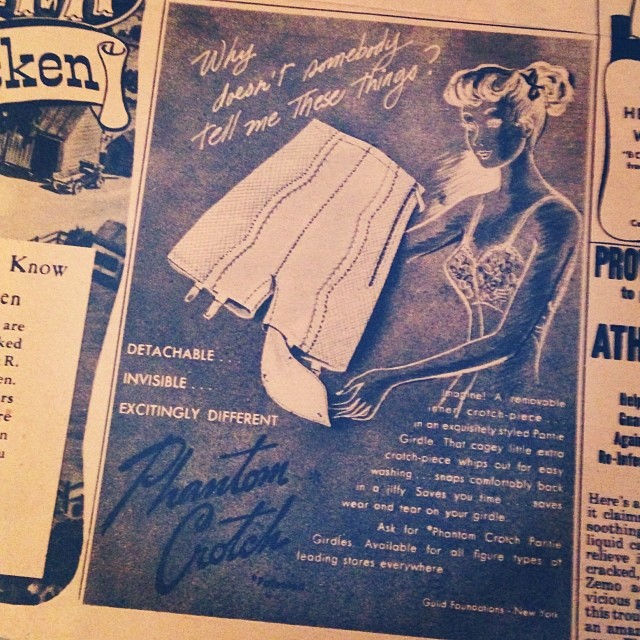 ken
Know
en
are
ked
R.
en.
rs
re
n
u
Why
doesn't somebody
tell me These Things?
DETACHABLE...
INVISIBLE...
EXCITINGLY DIFFERENT
Phantom
Crotch
A removable
crotch-piece...
in an exquisitely styled Pantie
Girdle. That cagey little extra
crotch-piece whips out for easy
washing... snaps comfortably back
in a jiffy. Saves you time... saves
wear and tear on your girdle.
Ask for *Phantom Crotch Pantie
Girdles. Available for all figure types at
leading stores everywhere.
Gold Foundations - New York
HE
PRO
to
ATH
Re-Infe
Here's a
it claim
soothing
liquid
relieve
cracked
Zemo a
vicious
this tro
an ama